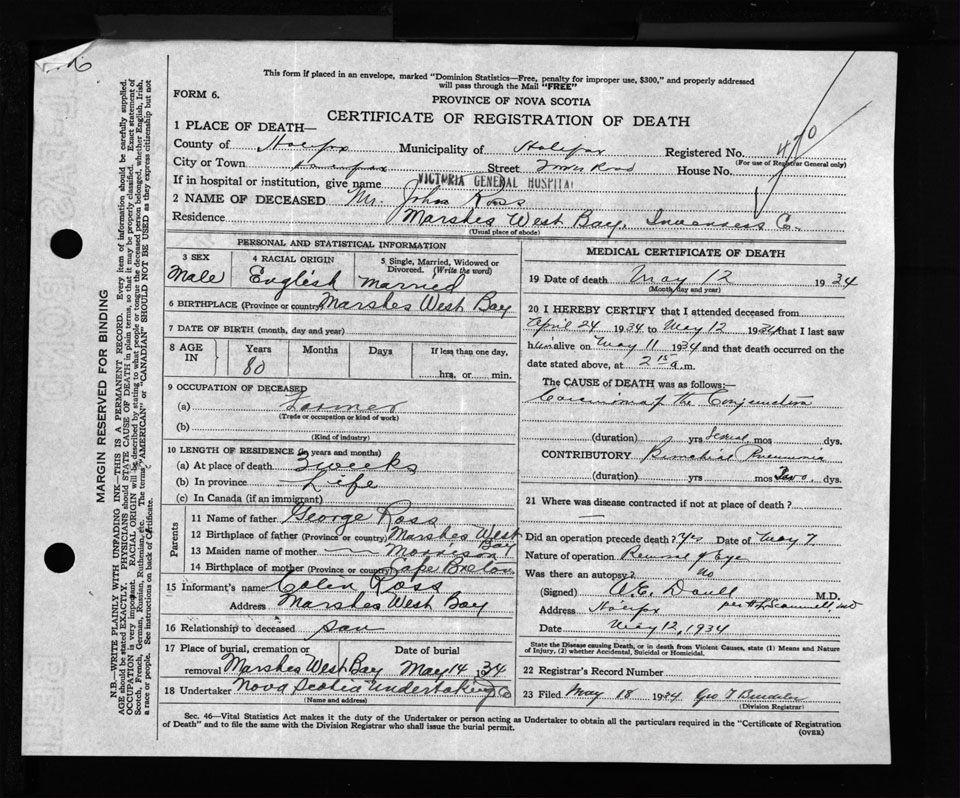 This form if placed in an envelope, marked "Dominion Statistics—Free, penalty for improper use, $300," and properly addressed
will pass through the Mail "FREE"
FORM 6.
PROVINCE OF NOVA SCOTIA
CERTIFICATE OF REGISTRATION OF DEATH
1 PLACE OF DEATH—
County of Halifax Municipality of Halifax Registered No. 470
(For use of Registrar General only)
City or Town Halifax Street Tower Road House No.
If in hospital or institution, give name VICTORIA GENERAL HOSPITAL
2 NAME OF DECEASED Mr. John Ross
Residence Marshes West Bay, Inverness Co.
(Usual place of abode)
PERSONAL AND STATISTICAL INFORMATION
3 SEX 4 RACIAL ORIGIN 5 Single, Married, Widowed or
Divorced. (Write the word)
Male English Married
6 BIRTHPLACE (Province or country) Marshes West Bay
7 DATE OF BIRTH (month, day and year)
8 AGE IN Years Months Days If less than one day,
80 hrs. or min.
9 OCCUPATION OF DECEASED
(a) Farmer
(Trade or occupation or kind of work)
(b)
(Kind of industry)
10 LENGTH OF RESIDENCE (in years and months)
(a) At place of death 3 weeks
(b) In province Life
(c) In Canada (if an immigrant)
Parents
11 Name of father George Ross
12 Birthplace of father (Province or country) Marshes West Bay
13 Maiden name of mother — Morrison
14 Birthplace of mother (Province or country) Cape Breton
15 Informant's name Colin Ross
Address Marshes West Bay
16 Relationship to deceased son
17 Place of burial, cremation or Date of burial
removal Marshes West Bay May 14 1934
18 Undertaker Nova Scotia Undertaking Co
(Name and address)
MEDICAL CERTIFICATE OF DEATH
19 Date of death May 12 1934
(Month, day and year)
20 I HEREBY CERTIFY that I attended deceased from
April 24 1934 to May 12 1934 that I last saw
him alive on May 11 1934 and that death occurred on the
date stated above, at 2 15 a.m.
The CAUSE of DEATH was as follows:—
Carcinoma of the Conjunctiva
(duration) yrs Several mos dys.
CONTRIBUTORY Bronchial Pneumonia
(duration) yrs mos Two dys.
21 Where was disease contracted if not at place of death?
—
Did an operation precede death? Yes Date of May 7
Nature of operation Removal of Eye
Was there an autopsy? No
(Signed) M.D.
Address Halifax
Date May 12, 1934
State the Disease causing Death, or in death from Violent Causes, state (1) Means and Nature
of Injury, (2) whether Accidental, Suicidal or Homicidal.
22 Registrar's Record Number
23 Filed May 18 1934 Geo T
(Division Registrar)
Sec. 46—Vital Statistics Act makes it the duty of the Undertaker or person acting as Undertaker to obtain all the particulars required in the "Certificate of Registration
of Death" and to file the same with the Division Registrar who shall issue the burial permit.
(OVER)
MARGIN RESERVED FOR BINDING
N.B.—WRITE PLAINLY WITH UNFADING INK—THIS IS A PERMANENT RECORD. Every item of information should be carefully supplied.
AGE should be stated EXACTLY. PHYSICIANS should STATE CAUSE OF DEATH in plain terms, so that it may be properly classified. Exact statement of
OCCUPATION is very important. RACIAL ORIGIN will be described by stating to what people or tongue the deceased person belonged, whether English, Irish,
Scotch, French, German, Russian, Ruthenian, etc. The terms "AMERICAN" or "CANADIAN" SHOULD NOT BE USED as they express citizenship but not
a race or people. See instructions on back of Certificate.